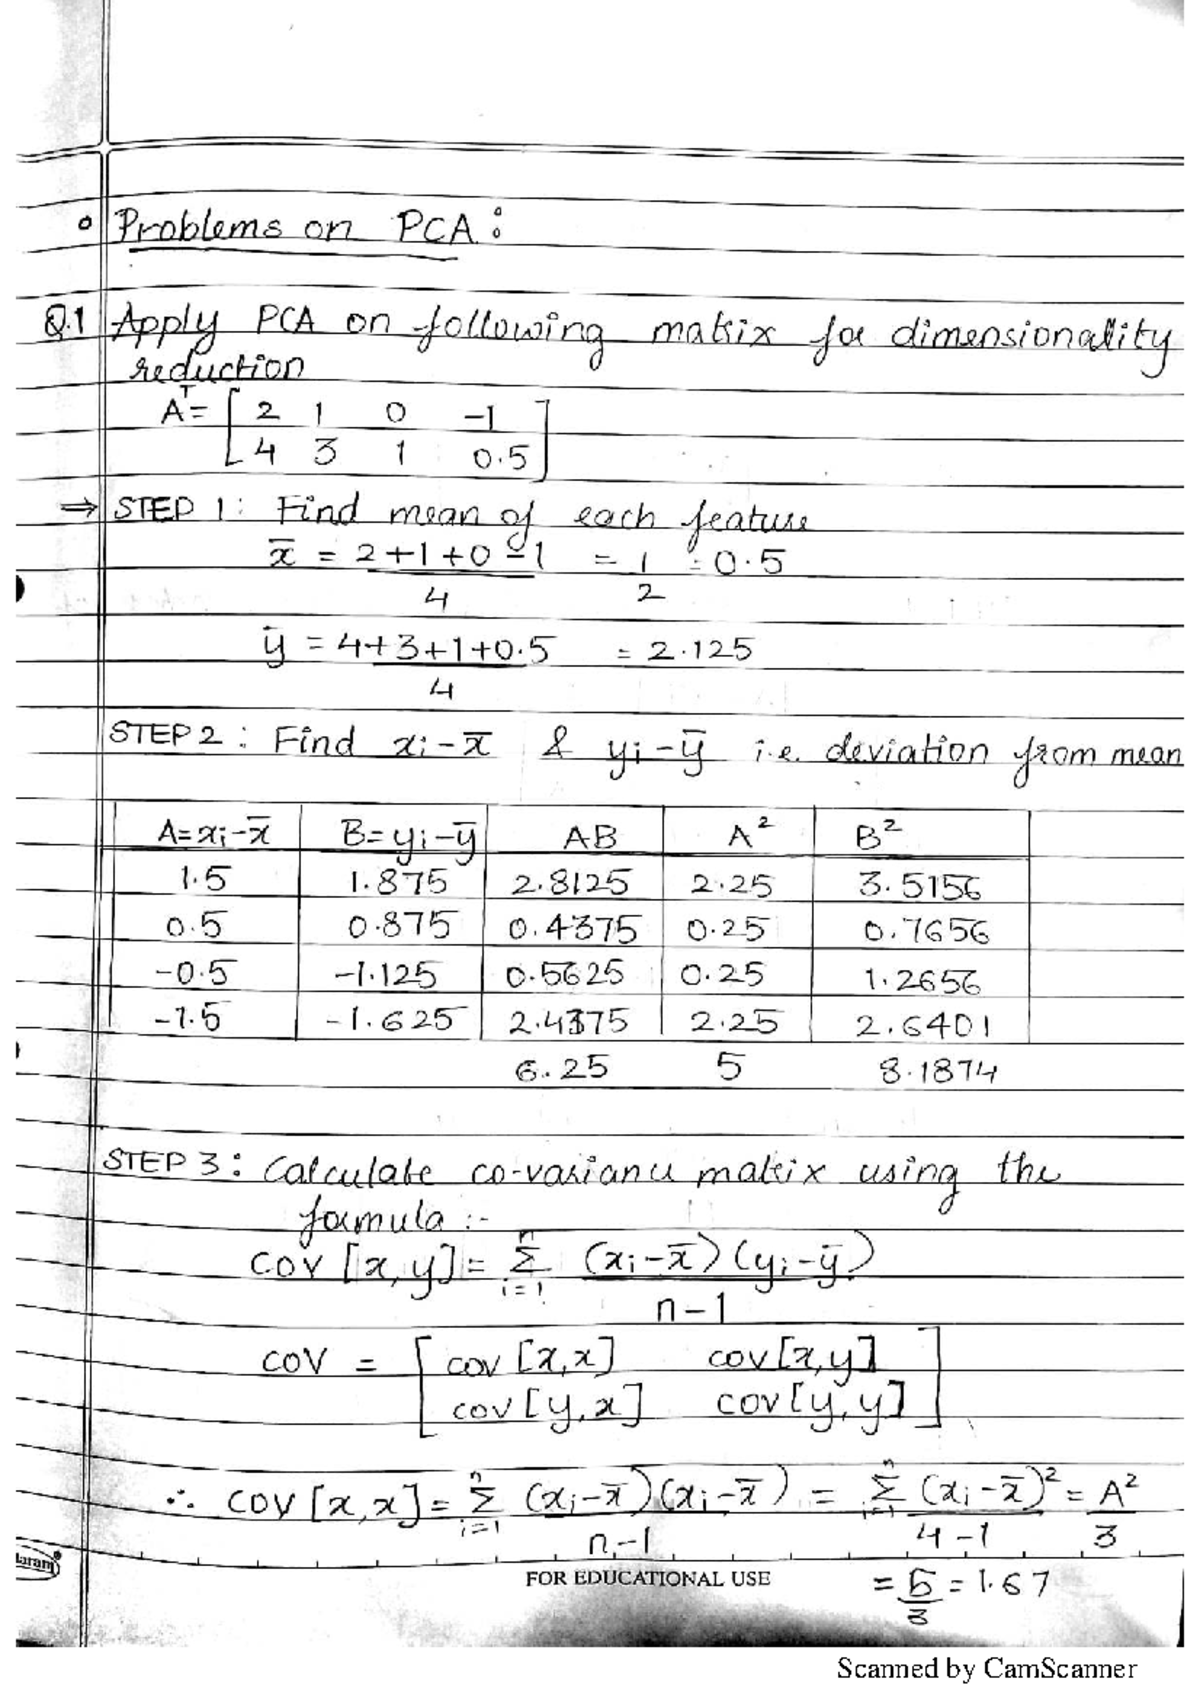 Problems on PCA:
Q.1 Apply PCA on following matrix for dimensionality
reduction
Aᵀ = [ 2 1 0 -1
4 3 1 0.5 ]
⇒ STEP 1: Find mean of each feature
x̄ = 2+1+0-1 / 4 = 1/2 = 0.5
ȳ = 4+3+1+0.5 / 4 = 2.125
STEP 2: Find xi-x̄ & yi-ȳ i.e. deviation from mean
A=xi-x̄ B=yi-ȳ AB A² B²
1.5 1.875 2.8125 2.25 3.5156
0.5 0.875 0.4375 0.25 0.7656
-0.5 -1.125 0.5625 0.25 1.2656
-1.5 -1.625 2.4375 2.25 2.6401
6.25 5 8.1874
STEP 3: Calculate co-variance matrix using the
formula :-
COV [x,y] = Σ i=1 n (xi-x̄)(yi-ȳ) / n-1
COV = [ cov[x,x] cov[x,y]
cov[y,x] cov[y,y] ]
∴ COV [x,x] = Σ i=1 n (xi-x̄)(xi-x̄) / n-1 = Σ i=1 n (xi-x̄)² / 4-1 = A²/3
FOR EDUCATIONAL USE
= 5/3 = 1.67
Scanned by CamScanner